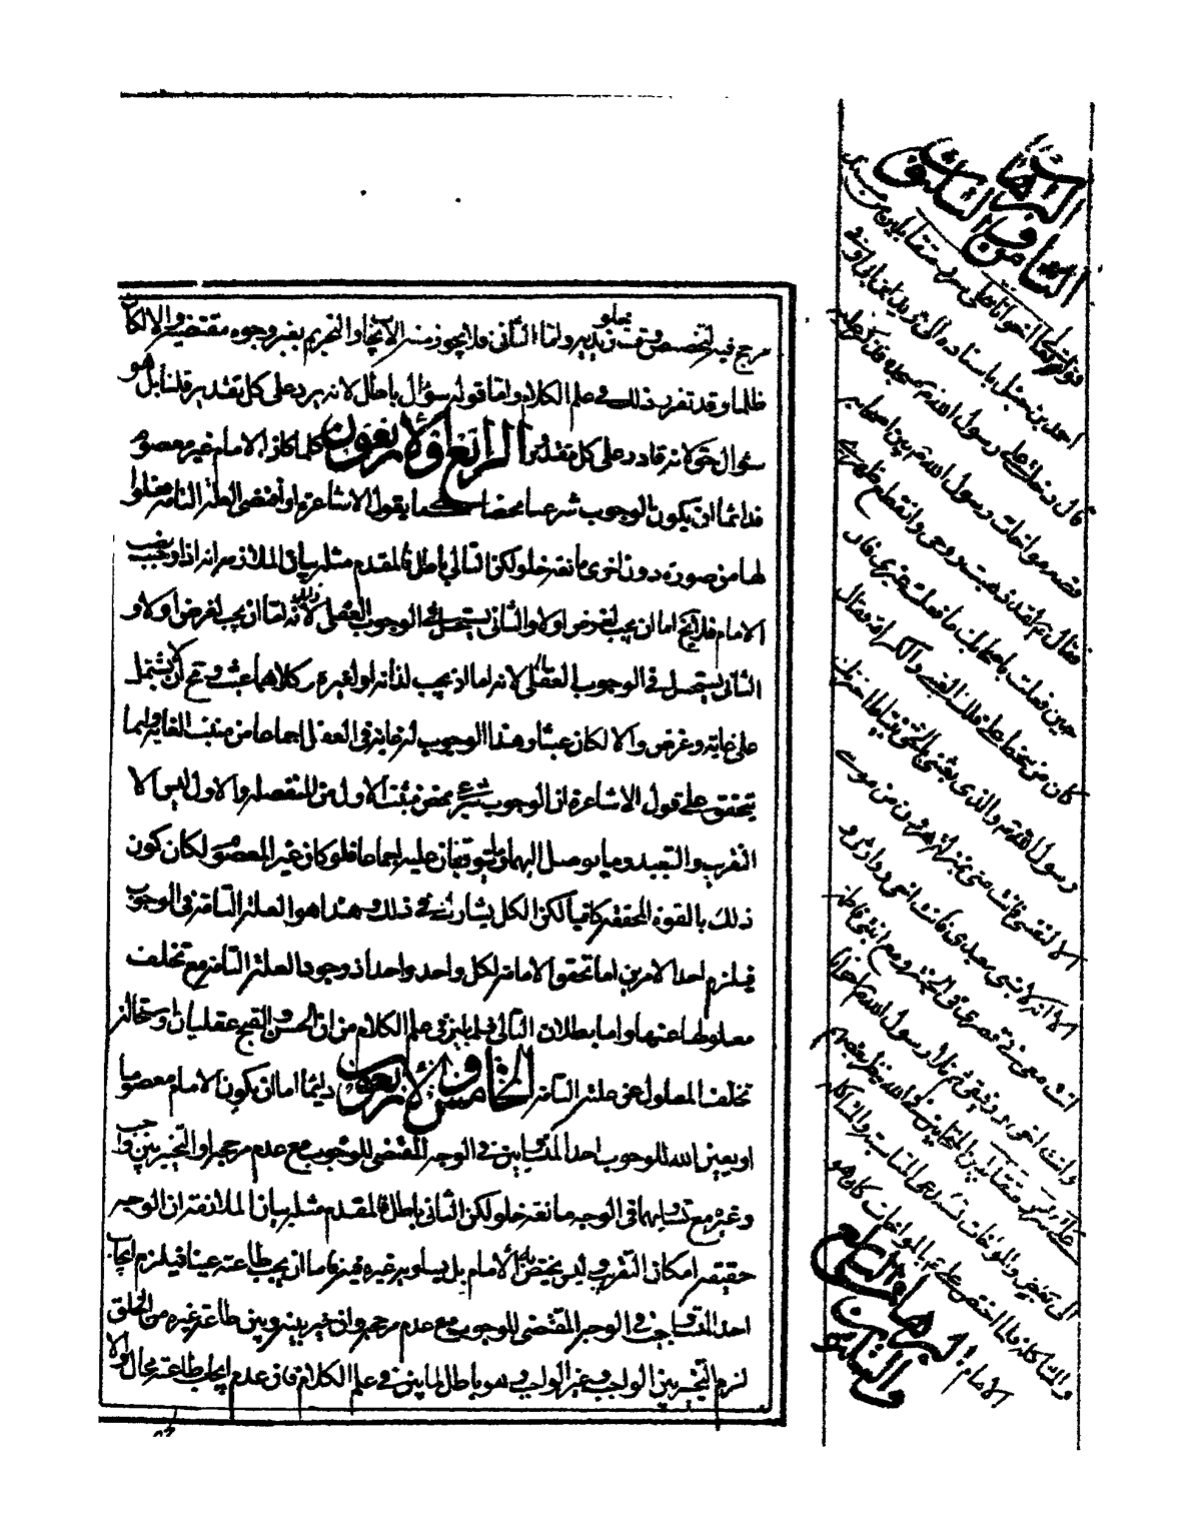 مرجح فيه لتخصص وقت دون غيره واما الثاني فلا يجوز منه الايجاب او التحريم بغير وجوه مقتضية والا لكان
ظلما وقد تقرر ذلك في علم الكلام واما قوله سؤال باطل لانه يرد على كل تقدير قلنا بل هو
سؤال حق لانه قادر على كل مقدور الرابع والاربعون كلما كان الامام غير معصوم
فدائما ان يكون الوجوب شرعيا محضا كما يقول الاشاعرة او
لها من صورة دون اخرى مانعة خلو لكن التالي باطل فالمقدم مثله بيان الملازمة انه اذا وجب نصب
الامام فلا يخ اما ان يجب لغرض او لا والثاني يستحيل في الوجوب العقلي لانه اما ان يجب لغرض او لا و
الثاني يستحيل في الوجوب العقلي لانه اما ان يجب لذاته او لغيره وكلاهما عبث وقبح لان يشتمل
على غاية وغرض والا لكان عبثا وهذا الوجوب له غاية في العقل اجماعا من مثبت الغاية وانما
يتحقق على قول الاشاعرة ان الوجوب شرعي محض فثبت الاول من المنفصلة والاول ليس الا
التقريب والتبعيد وما يوصل اليهما ويتوقفان عليه اجماعا فلو كان غير المعصوم لكان كون
ذلك بالقوة المحققة كافيا لكن الكل يشارك في ذلك وهذا هو العلة التامة في الوجوب
فيلزم احد الامرين اما تحقق الامامة لكل واحد واحد اذ وجود العلة التامة مع تخلف
معلولها عنها واما بطلان التالي فلما تبين في علم الكلام من ان الحسن والقبح عقليان واستحالة
تخلف المعلول عن علته التامة الخامس والاربعون دائما اما ان يكون الامام معصوما
او يعين الله للوجوب احد المتساويين في الوجه المقتضي للوجوب مع عدم مرجح او التخيير بين واجب
وغيره مع تساويهما في الوجه مانعة خلو لكن الثاني باطل فالمقدم مثله بيان الملازمة ان الوجه
حقيقة امكان التقريب وليس يختص بالامام بل يساويه غيره فيه فاما ان يجب طاعته عينا فيلزم ايجاب
احد المتساويين في الوجه المقتضي للوجوب مع عدم مرجح وان خير بينه وبين طاعة غيره من الخلق
لزم التخيير بين الواجب وغير الواجب وهو باطل لما تبين في علم الكلام فان عدم ايجاب طاعته محال والا
البرهان
الثامن والثالثون
احمد بن حنبل باسناده الى زيد بن ابي اوفى
قال دخلت على رسول الله ص مسجده فذكر عليه
قصة مواخات رسول الله ص بين اصحابه
فقال علي لقد ذهبت روحي وانقطع ظهري
حين فعلت باصحابك ما فعلت غيري فان
كان من سخط علي فلك العتبى والكرامة فقال
رسول الله ص والذي بعثني بالحق نبيا ما اخترتك
الا لنفسي فانت مني بمنزلة هرون من موسى
الا انه لا نبي بعدي فانت اخي ووارثي و
انت معي في قصري في الجنة ومع ابنتي فاطمة
وانت اخي ورفيقي ثم تلا رسول الله ص اخوانا
على سرر متقابلين المتحابين في الله ينظر بعضهم
الى بعض والمواخات تستدعي المناسبة والمشاكلة
فلما اختص علي ع بالمواخات كان هو
الامام البرهان التاسع
والثالثون